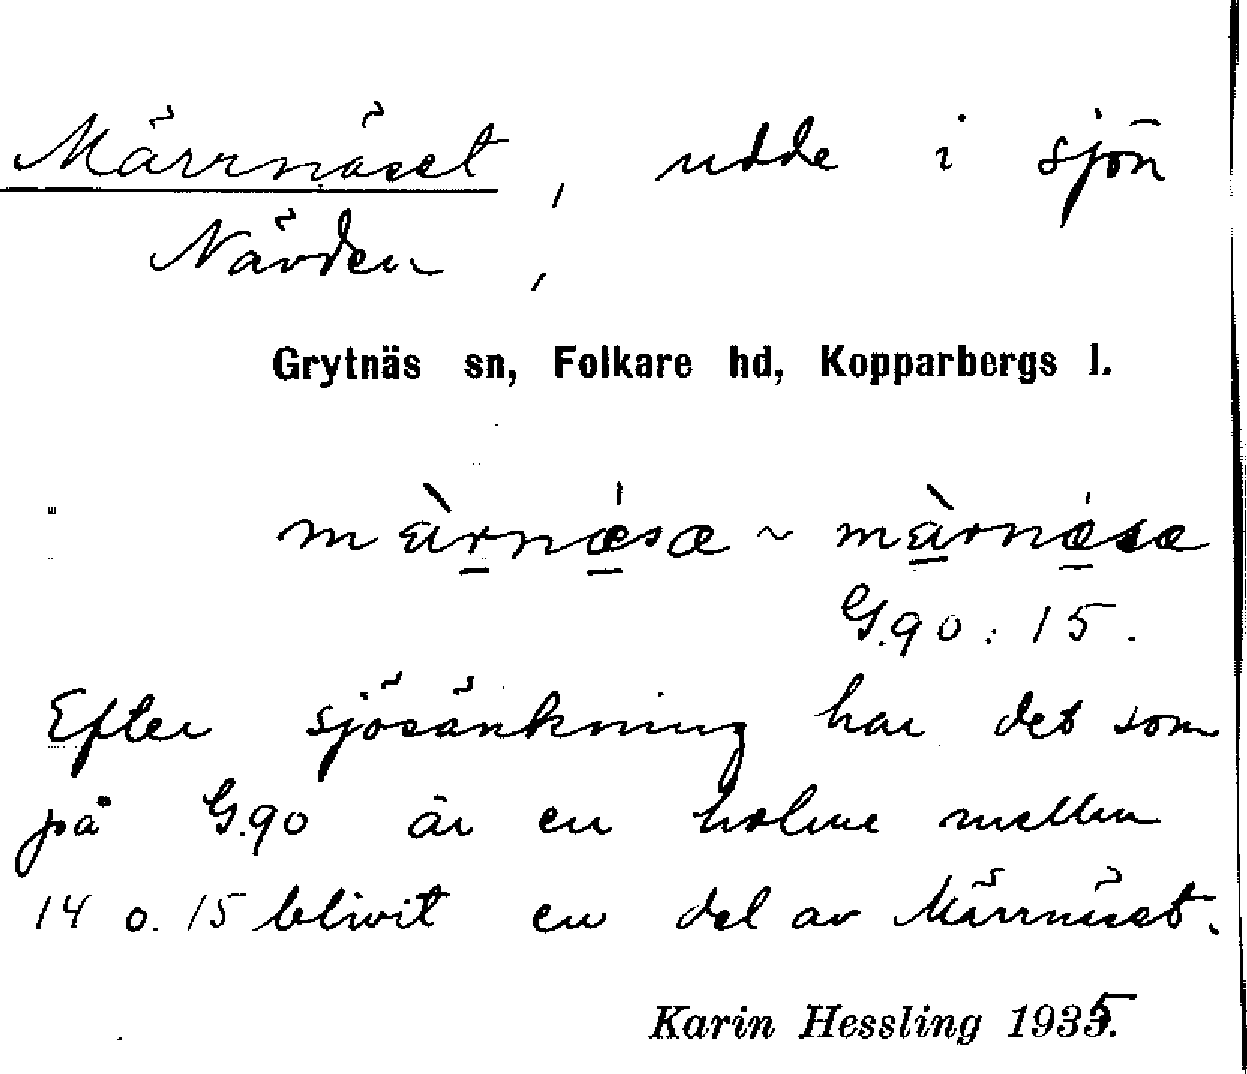 Märrnäset, udde i sjön
Nävden,
Grytnäs sn, Folkare hd, Kopparbergs l.
mærnæsæ ~ màrnæsæ
G.90:15.
Efter sjösänkning har det som
på G.90 är en holme mellan
14 o. 15 blivit en del av Märrnäset.
Karin Hessling 1935.